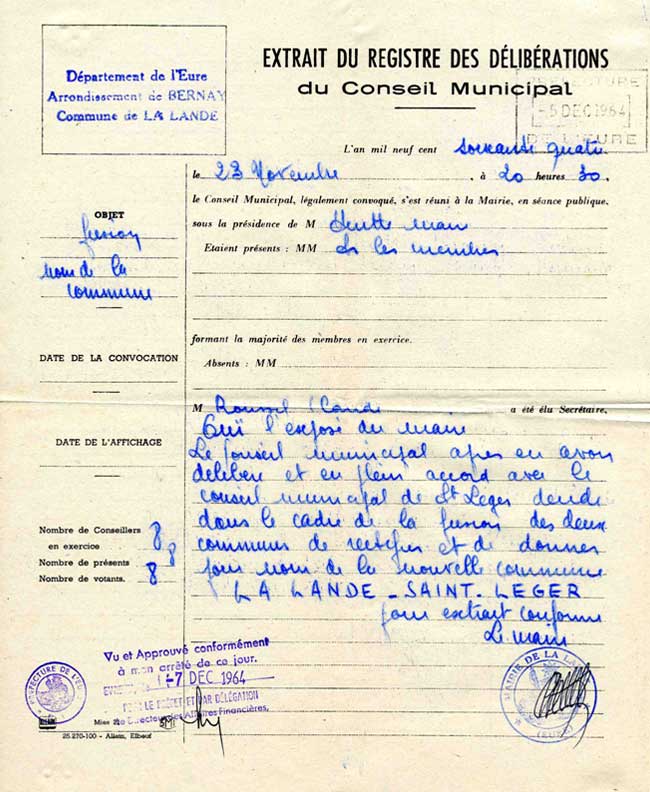 Département de l'Eure
Arrondissement de BERNAY
Commune de LA LANDE
EXTRAIT DU REGISTRE DES DÉLIBÉRATIONS
du Conseil Municipal
PREFECTURE
-5 DEC 1964
DE L'EURE
L'an mil neuf cent soixante quatre
le 23 Novembre à 20 heures 30.
le Conseil Municipal, légalement convoqué, s'est réuni à la Mairie, en séance publique,
sous la présidence de M maire
Etaient présents : MM les membres
OBJET
fusion
nom de la
commune
formant la majorité des membres en exercice.
DATE DE LA CONVOCATION
Absents : MM
M Roussel Claude a été élu Secrétaire.
Ouï l'exposé du maire
DATE DE L'AFFICHAGE
Le Conseil municipal apres en avoir
délibéré et en plein accord avec le
conseil municipal de St Leger decide
dans le cadre de la fusion des deux
communes de et de donner
pour nom de la nouvelle commune
LA LANDE - SAINT. LEGER
pour extrait conforme
Le maire
Nombre de Conseillers
en exercice 8
Nombre de présents 8
Nombre de votants. 8
Vu et Approuvé conformément
à mon arrêté de ce jour.
-7 DEC 1964
POUR LE PRÉFET ET PAR DÉLÉGATION
Le Directeur des Affaires Financières,
PREFECTURE DE L'EURE
MAIRIE DE LA LANDE
(EURE)
25.270-100 - Allain, Elbeuf